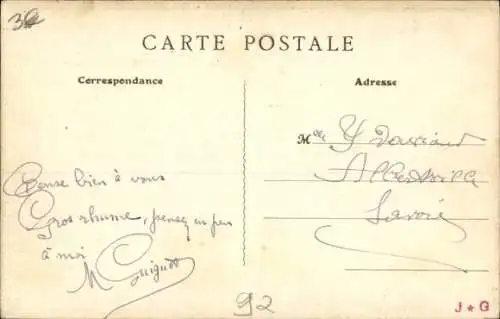 CARTE POSTALE
Correspondance
Adresse
Mlle Y
Albertville
Savoie
Pense bien à vous
Gros rhume, pensez un peu
à moi
M Guignot
92
J★G